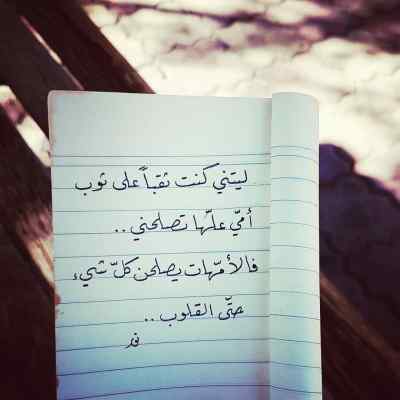 ليتني كنت ثقباً على ثوب
أميّ علّها تصلحني ..
فالأمّهات يصلحن كلّ شيء
حتّى القلوب ..